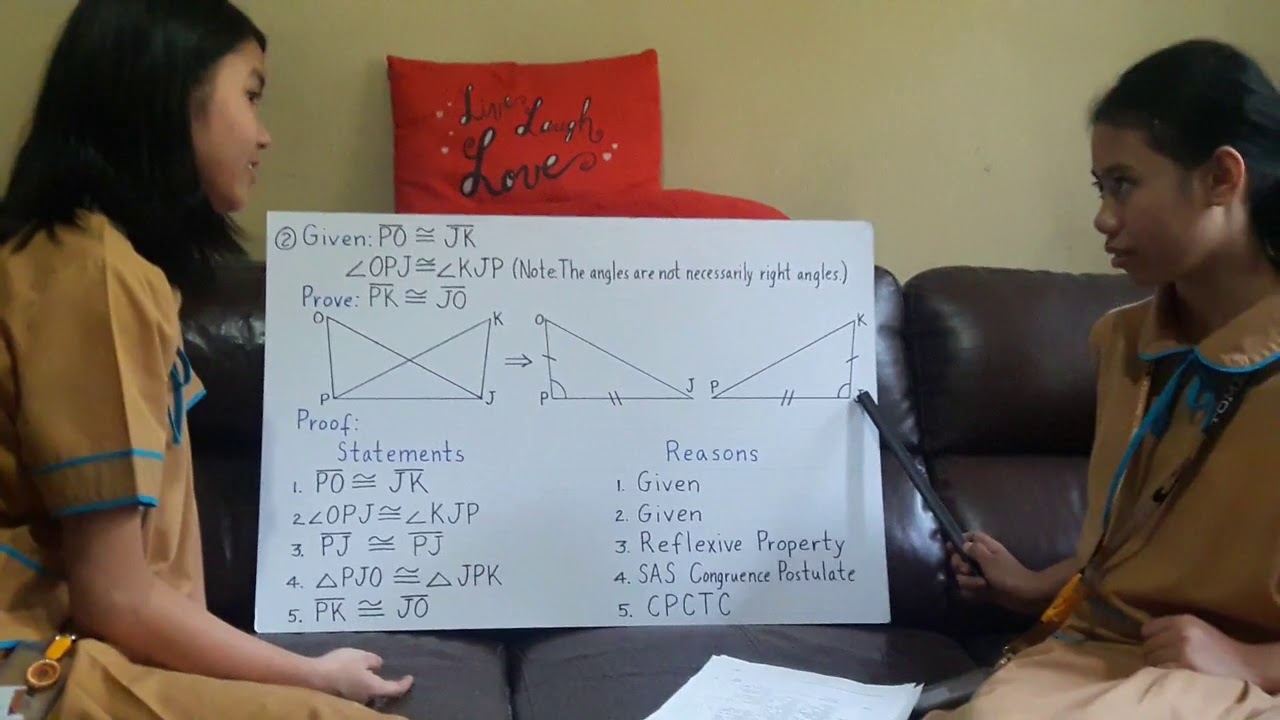 Live Laugh
Love
② Given: P̅O̅ ≅ J̅K̅
∠OPJ≅∠KJP (Note: The angles are not necessarily right angles.)
Prove: P̅K̅ ≅ J̅O̅
O K O K
⇒
P J P J P
Proof:
Statements Reasons
1. P̅O̅ ≅ J̅K̅ 1. Given
2. ∠OPJ≅∠KJP 2. Given
3. P̅J̅ ≅ P̅J̅ 3. Reflexive Property
4. △PJO ≅ △JPK 4. SAS Congruence Postulate
5. P̅K̅ ≅ J̅O̅ 5. CPCTC